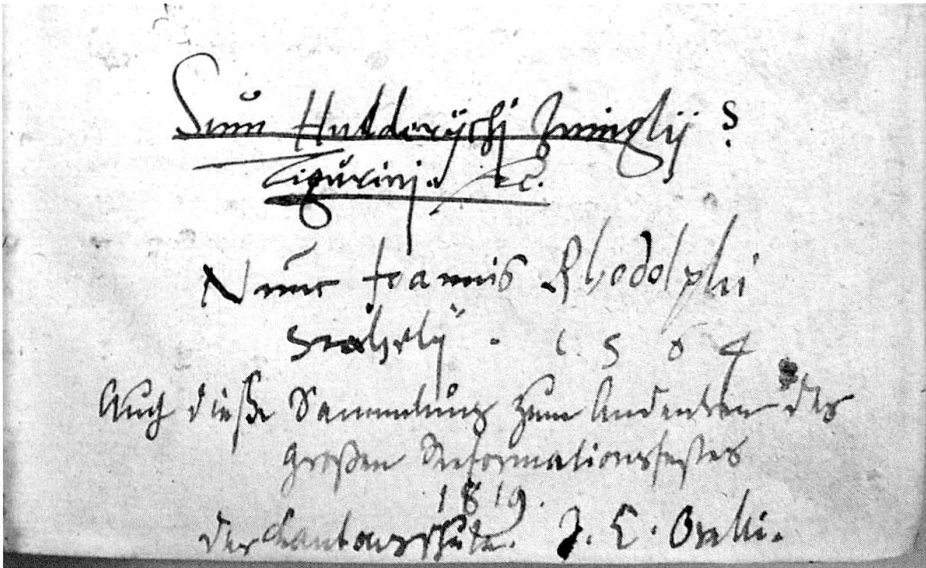 Sum Huldrychj Zwinglij
Tigurinj. &c.
Nunc Joannis Rhodolphi
1564
Auch dieße Sammlung zum Andenken des
großen Reformationsfestes
1819.
der Cantonsschule. J. C. Orelli.